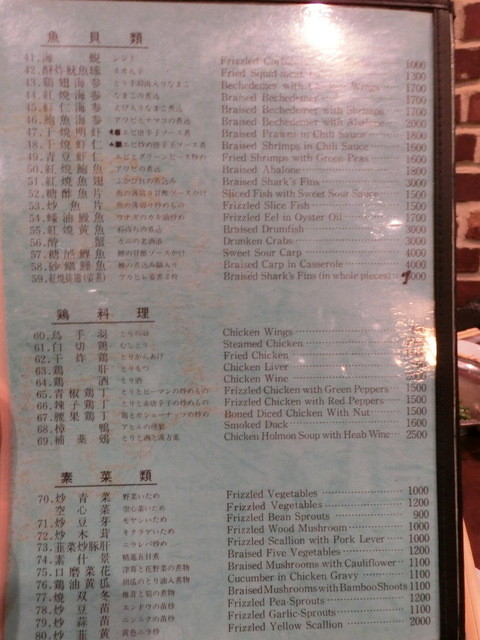 魚貝類
42. Fried Squid meat 1300
43. 鶏翅海参 Bechedemer with Wings 1700
44. 紅焼海参 なまこの煮込 Braised Bechedemer 1700
45. 蝦仁海参 Braised Bechedemer with Shrimps 1700
46. 鮑魚海参 アワビとナマコの煮込 Braised Bechedemer with 2000
47. 干焼明蝦 エビ唐辛子ソース煮 Braised Prawn in Chili Sauce 1800
48. 干焼蝦仁 Braised Shrimps in Chili Sauce 1600
49. 青豆蝦仁 エビとグリーンピース炒め Fried Shrimps with Green Peas 1600
50. 紅焼鮑魚 アワビの煮込 Braised Abalone 1800
51. 紅焼魚翅 ふかひれの煮込み Braised Shark's Fins 3000
52. 糖醋魚片 Sliced Fish with Sweet Sour Sauce 1500
53. 炒魚片 Frizzled Slice Fish 1500
54. 蠔油鰻魚 ウナギのカキ油炒め Frizzled Eel in Oyster Oil 1700
55. 紅焼黄魚 Braised Drumfish 3000
56. 酔蟹 Drunken Crabs 3000
57. 糖醋鯉魚 鯉の甘酢ソースかけ Sweet Sour Carp 4000
58. 砂鍋鯉魚 Braised Carp in Casserole 4000
59. Braised Shark's Fins (in whole pieces)
鶏料理
60. 鳥手羽 Chicken Wings
61. 白切鶏 むしとり Steamed Chicken
62. 干炸鶏 とりからあげ Fried Chicken
63. 鶏肝 とりもつ Chicken Liver
64. 鶏酒 とり酒 Chicken Wine
65. 青椒鶏丁 とりとピーマンの炒めもの Frizzled Chicken with Green Peppers 1500
66. 辣子鶏丁 Frizzled Chicken with Red Peppers 1500
67. 腰果鶏丁 鶏とカシューナッツの炒め Boned Diced Chicken With Nut 1500
68. 樟鴨 アヒルの燻製 Smoked Duck 1600
69. 補薬鶏 とりと酒と漢方薬 Chicken Holmon Soup with Heab Wine 2500
素菜類
70. 炒青菜 野菜いため Frizzled Vegetables 1000
空心菜 空心菜いため Frizzled Vegetables 1200
71. 炒豆芽 モヤシいため Frizzled Bean Sprouts 900
72. 炒木茸 キクラゲいため Frizzled Wood Mushroom 1000
73. 韮菜炒豚肝 ニラレバ炒め Frizzled Scallion with Pork Lever 1000
74. 素什景 精進五目煮 Braised Five Vegetables 1200
75. 口磨菜花 洋茸と花野菜の煮物 Braised Mushrooms with Cauliflower 1100
76. 鶏油黄瓜 胡瓜のとり油人煮物 Cucumber in Chicken Gravy 1100
77. 焼双冬 椎茸と筍の煮物 Braised Mushrooms with Bamboo Shoots 1100
78. 炒豆苗 エンドウの苗炒 Frizzled Pea-Sprouts 1200
79. 炒蒜苗 ニンニクの苗炒 Frizzled Garlic-Sprouts 1100
80. 炒韮黄 黄色ニラ炒 Frizzled Yellow Scallion 2000